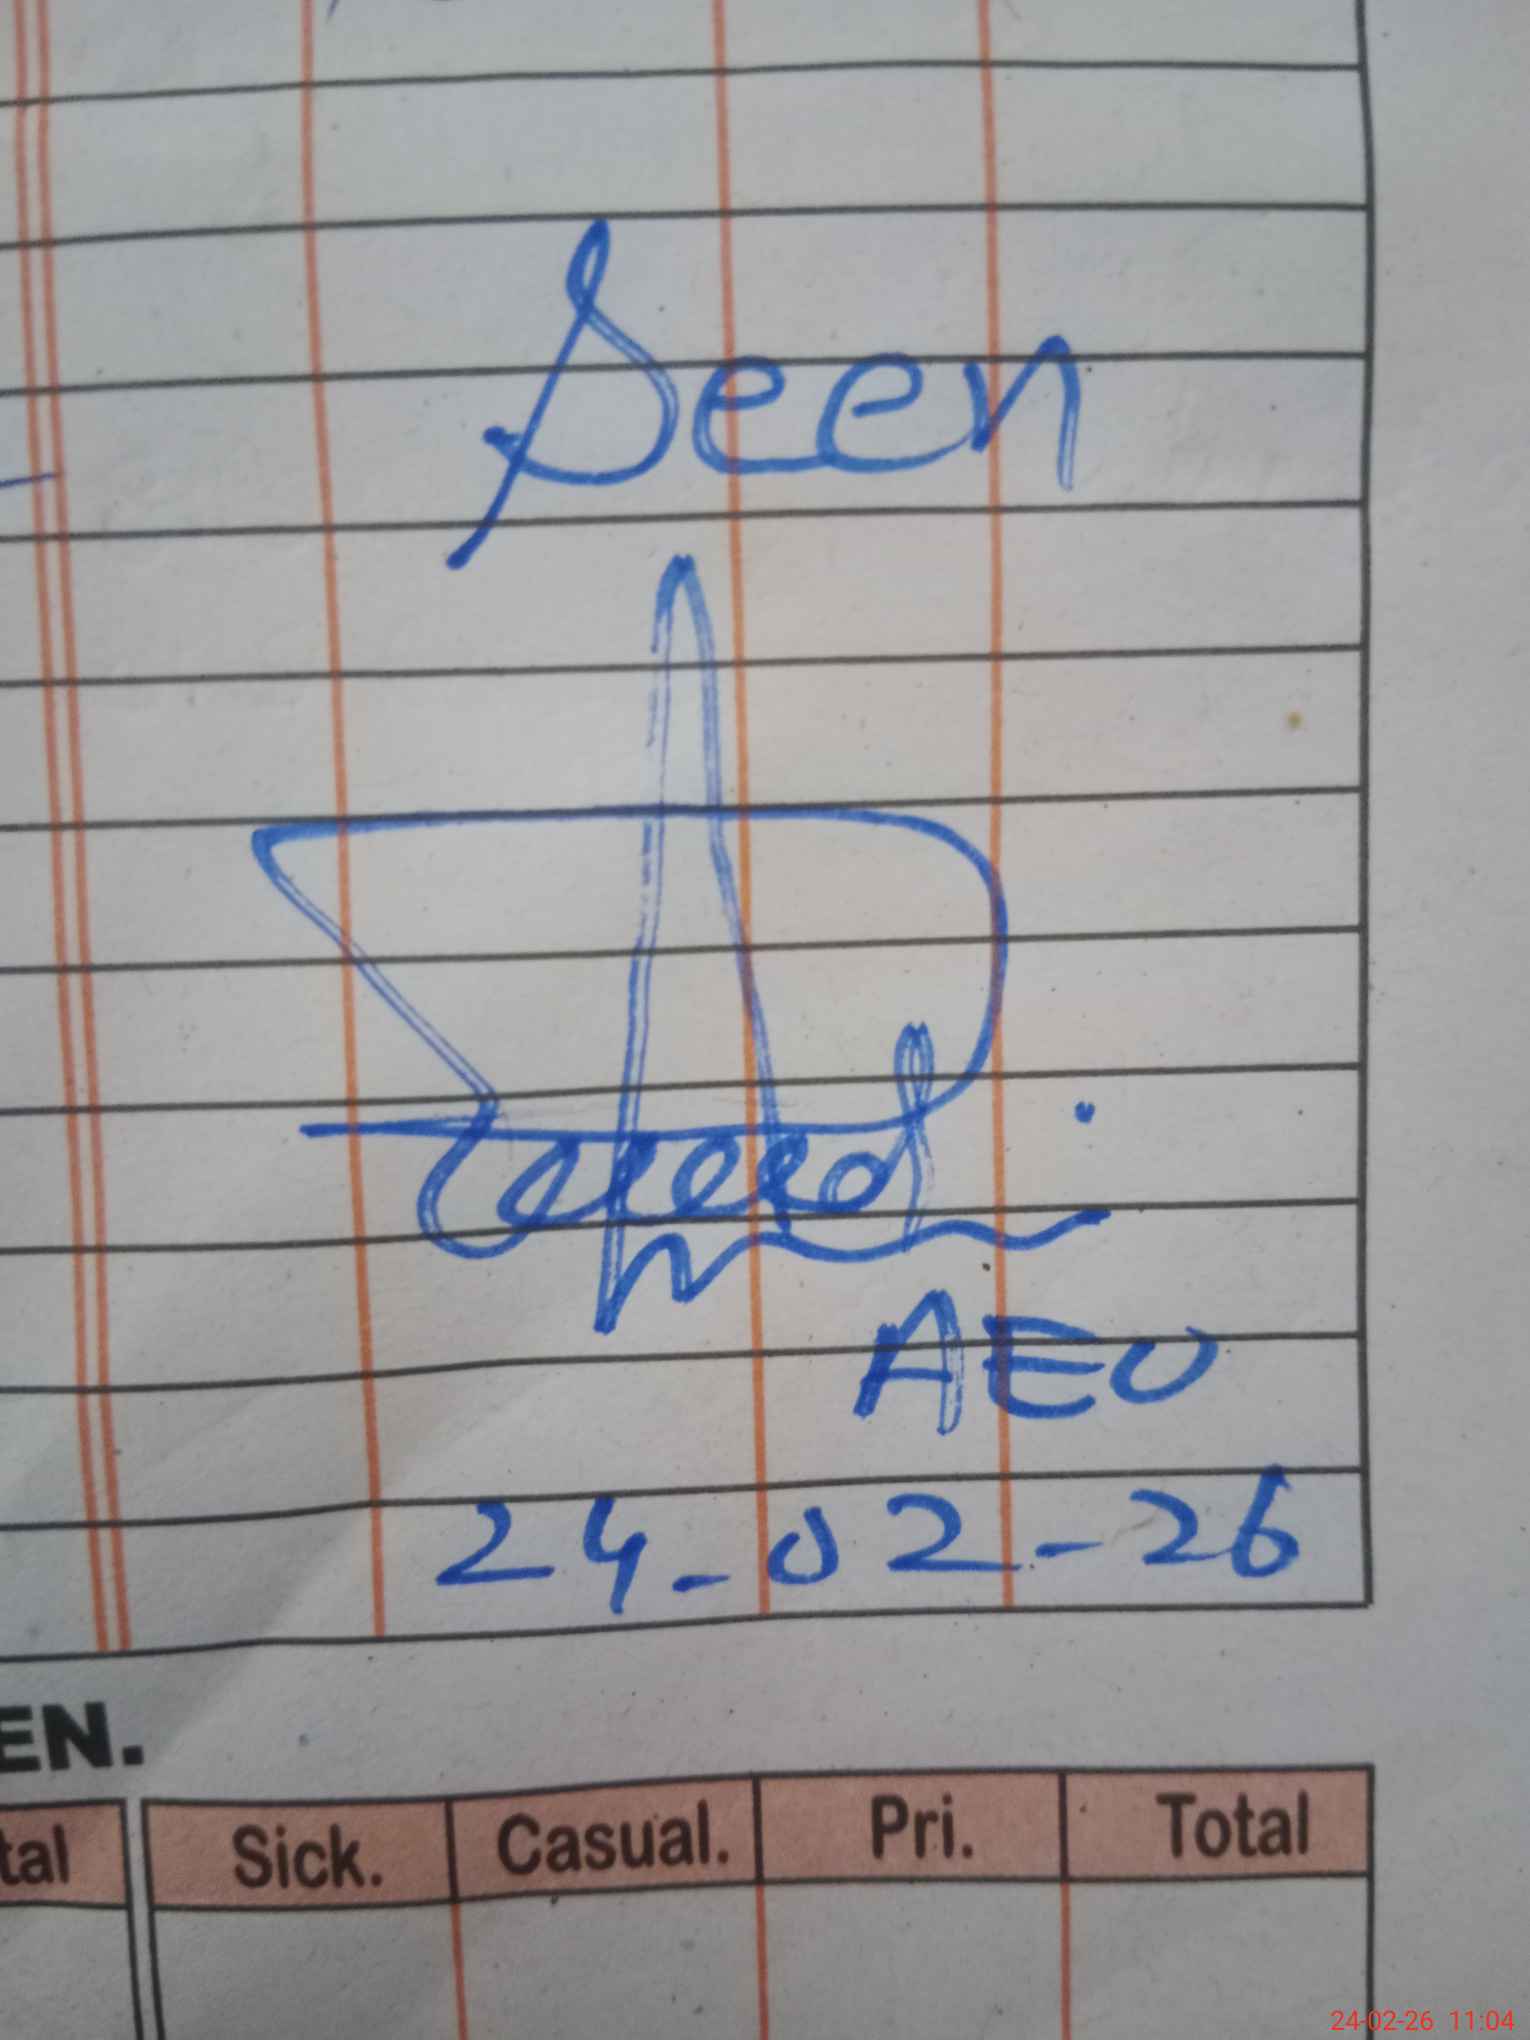 Seen
AEO
24-02-26
EN.
tal Sick. Casual. Pri. Total
24-02-26 11:04